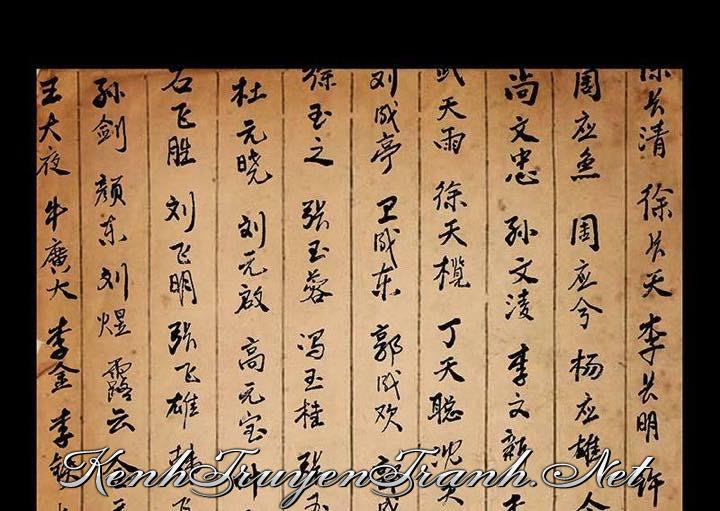 长清 徐长天 李长明 许
周应鱼 周应兮 杨应雄
尚文忠 孙文淩 李文
武天雨 徐天榄 丁天聪 沈天
刘成亭 卫成东 郭成欢
徐玉之 张玉蓉 冯玉桂 张玉
杜元晓 刘元啟 高元宝 叶
石飞胜 刘飞明 张飞雄 林飞
孙剑 颜东 刘煜 露云
王大夜 牛廣大 李金 李
KenhTruyenTranh.Net